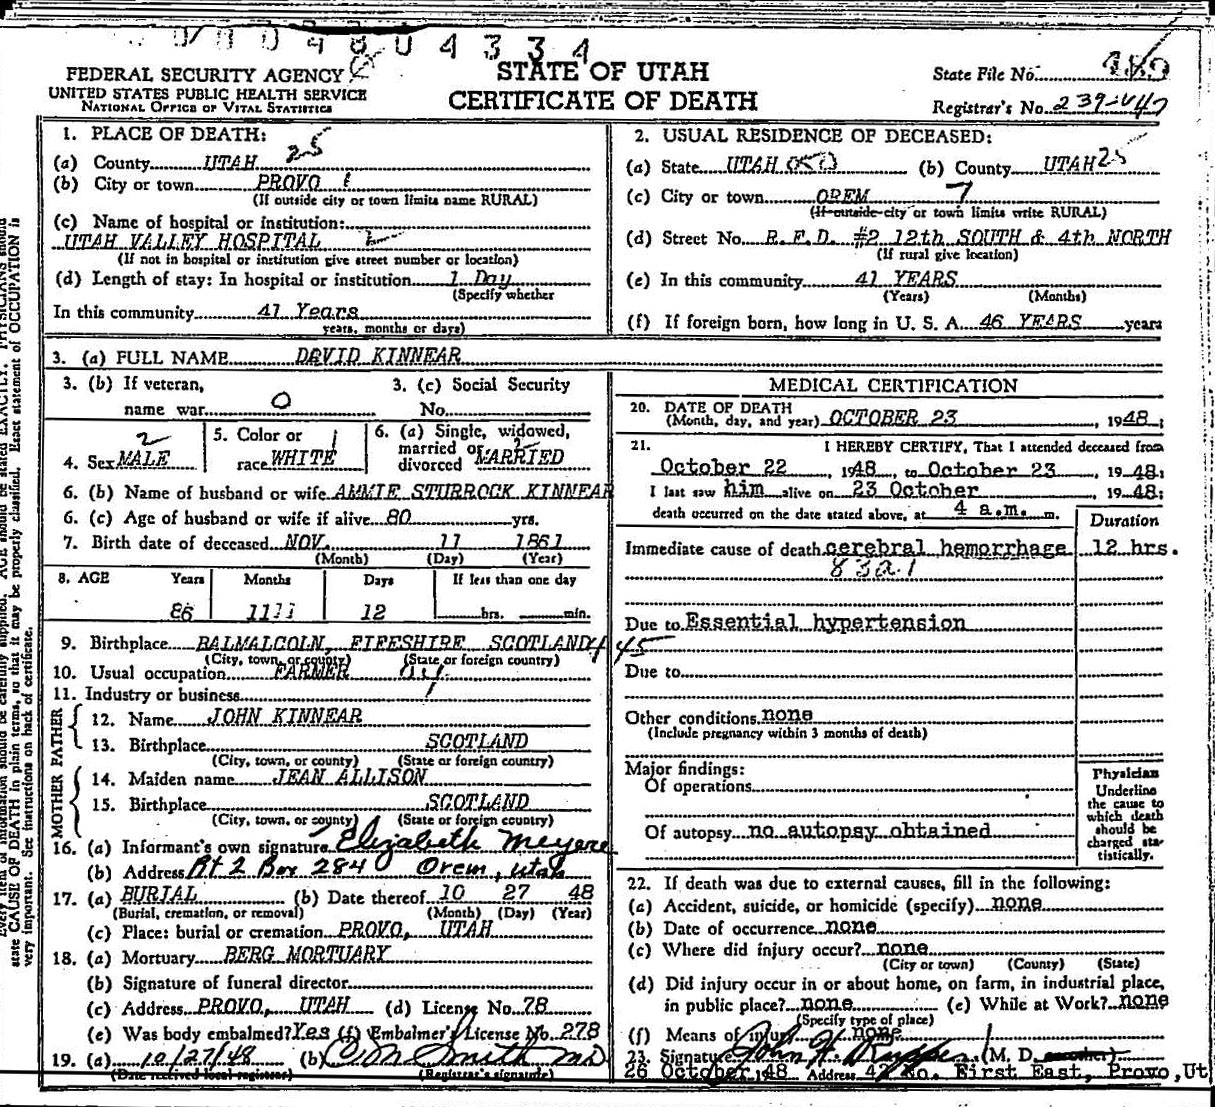 0 0 0 4 8 0 4 3 3 4
FEDERAL SECURITY AGENCY
UNITED STATES PUBLIC HEALTH SERVICE
NATIONAL OFFICE OF VITAL STATISTICS
STATE OF UTAH
CERTIFICATE OF DEATH
State File No.
Registrar's No.
1. PLACE OF DEATH: 25
(a) County UTAH
(b) City or town PROVO 1
(If outside city or town limits name RURAL)
(c) Name of hospital or institution:
UTAH VALLEY HOSPITAL
(If not in hospital or institution give street number or location)
(d) Length of stay: In hospital or institution 1 Day
(Specify whether
In this community 41 Years
years, months or days)
2. USUAL RESIDENCE OF DECEASED:
(a) State UTAH 050 (b) County UTAH 25
(c) City or town OREM 7
(If outside city or town limits write RURAL)
(d) Street No. R.F.D. #2 12th SOUTH & 4th NORTH
(If rural give location)
(e) In this community 41 YEARS
(Years) (Months)
(f) If foreign born, how long in U. S. A. 46 YEARS years
3. (a) FULL NAME DAVID KINNEAR
3. (b) If veteran,
name war 0
3. (c) Social Security
No.
4. Sex MALE 2
5. Color or 1
race WHITE
6. (a) Single, widowed,
married or 2
divorced MARRIED
6. (b) Name of husband or wife ANNIE STURROCK KINNEAR
6. (c) Age of husband or wife if alive 80 yrs.
7. Birth date of deceased NOV. 11 1861
(Month) (Day) (Year)
8. AGE Years Months Days If less than one day
86 11 12 hrs. min.
9. Birthplace BALMALCOLN, FIFESHIRE SCOTLAND
(City, town, or county) (State or foreign country)
10. Usual occupation FARMER
11. Industry or business
FATHER
12. Name JOHN KINNEAR
13. Birthplace SCOTLAND
(City, town, or county) (State or foreign country)
MOTHER
14. Maiden name JEAN ALLISON
15. Birthplace SCOTLAND
(City, town, or county) (State or foreign country)
16. (a) Informant's own signature Elizabeth Meyers
(b) Address Rt 2 Box 284 Orem, utah
17. (a) BURIAL (b) Date thereof 10 27 48
(Burial, cremation, or removal) (Month) (Day) (Year)
(c) Place: burial or cremation PROVO, UTAH
18. (a) Mortuary BERG MORTUARY
(b) Signature of funeral director
(c) Address PROVO, UTAH (d) License No. 78
(e) Was body embalmed? Yes (f) Embalmer's License No. 278
19. (a) 10/27/48 (b) Smith MD
(Date received local registrar) (Registrar's signature)
MEDICAL CERTIFICATION
20. DATE OF DEATH
(Month, day, and year) OCTOBER 23, 1948;
21. I HEREBY CERTIFY, That I attended deceased from
October 22, 1948, to October 23, 1948;
I last saw him alive on 23 October, 1948;
death occurred on the date stated above, at 4 a.m. m.
Duration
Immediate cause of death cerebral hemorrhage 12 hrs.
83a.1
Due to Essential hypertension
Due to
Other conditions none
(Include pregnancy within 3 months of death)
Major findings:
Of operations
Of autopsy no autopsy obtained
Physician
Underline
the cause to
which death
should be
charged sta-
tistically.
22. If death was due to external causes, fill in the following:
(a) Accident, suicide, or homicide (specify) none
(b) Date of occurrence none
(c) Where did injury occur? none
(City or town) (County) (State)
(d) Did injury occur in or about home, on farm, in industrial place,
in public place? none (e) While at Work? none
(Specify type of place)
(f) Means of injury none
23. Signature John H. Rupper (M. D. or other)
26 October 48 Address 42 No. First East, Provo, Ut
state CAUSE OF DEATH in plain terms, so that it may be properly classified. Exact statement of OCCUPATION is
very important. See instructions on back of certificate.